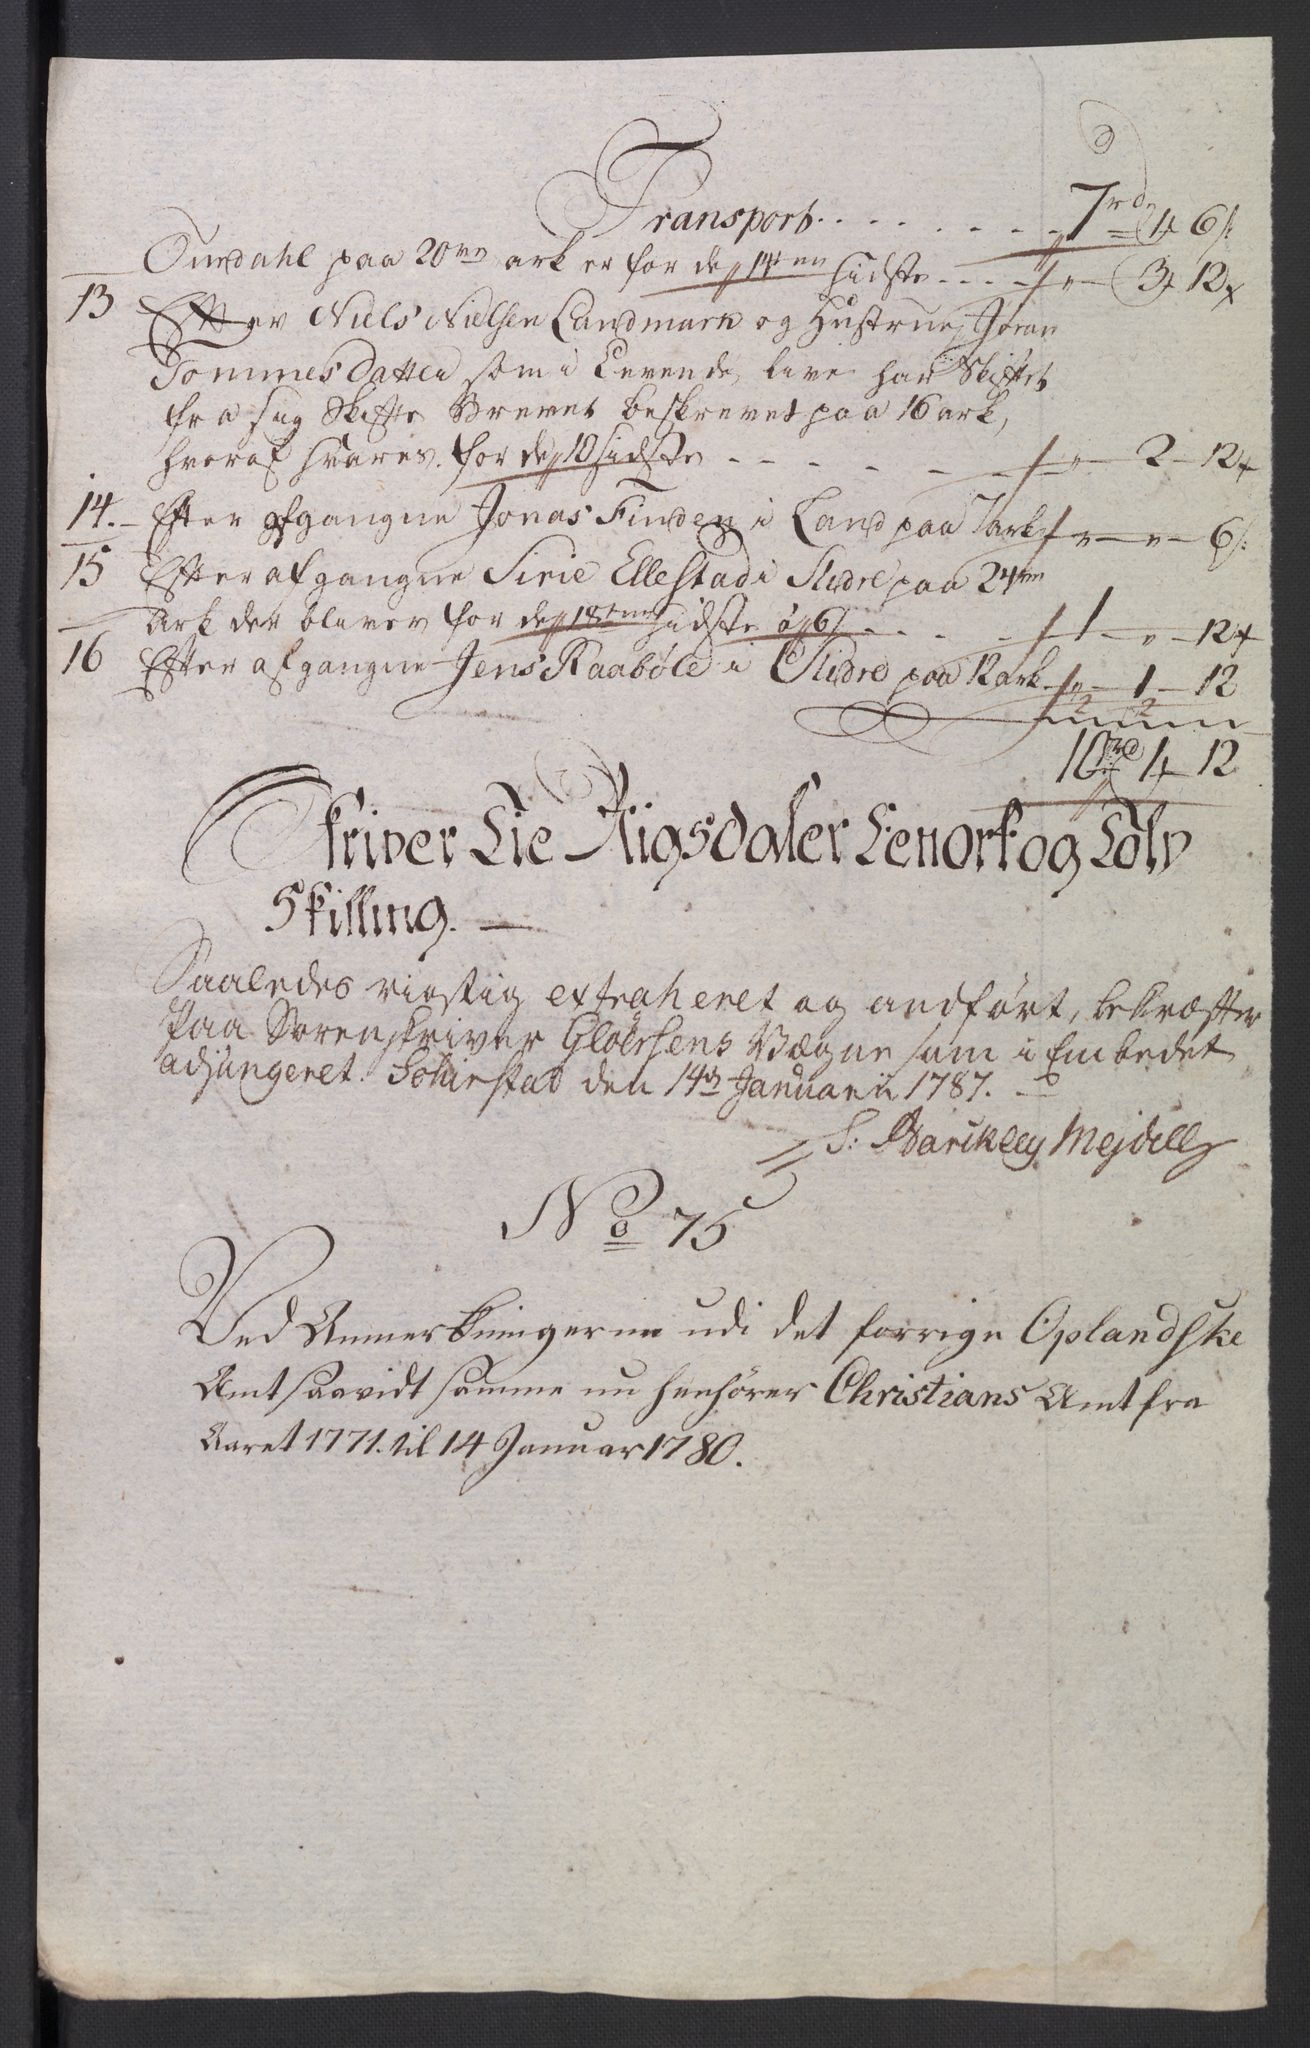 Transport . . . . . . . 7rd 4 6s:
Ourdahl paa 20ve ark er for de 14ten sidste . . . " 3 12
13 Efter Niels Nielsen Landmark og Hustrue Joran
Tommesdatter som i Levende live har Skiftet
fra sig Skifte Brevet beskrevet paa 16 ark,
hvoraf svares for de 10 sidste - - - - - " - 2 - 12
14. Efter afgangne Jonas Finden i Land paa 7 ark " - " - 6s:
15 Efter afgangne Sirie Ellestad i Slidre paa 24ve
Ark der bliver for de 18ten sidste á 6s . . . . 1 - " - 12
16 Efter afgangne Jens Raaböle i Slidre paa 12 ark " - 1 - 12
2 2
10rd 4 12
Skriver Tie Riigsdaler Fenort og Tolv
Skilling. —
Saaledes rigtig extraheret og andført, bekræfter
paa Sorenskriver Gløersens Vægne som i Embedet
adjungeret. Sohiestad den 14d Januarii 1787.
S: Barckley Mejdell
No 75
Ved Anmerkningerne udi det forrige Oplandske
Amt saavidt samme nu henhører Christians Amt fra
Aaret 1771. til 14 Januar 1780.